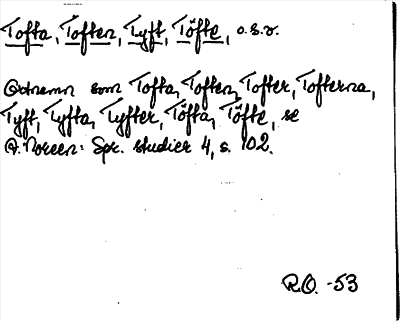 Tofta, Toften, Tyft, Töfte, o.s.v.
Ortnamn som Tofta, Toften, Tofter, Tofterna,
Tyft, Tyfta, Tyfter, Töfta, Töfte, se
A. Noreen: Spr. studier 4, s. 102.
R.O. -53